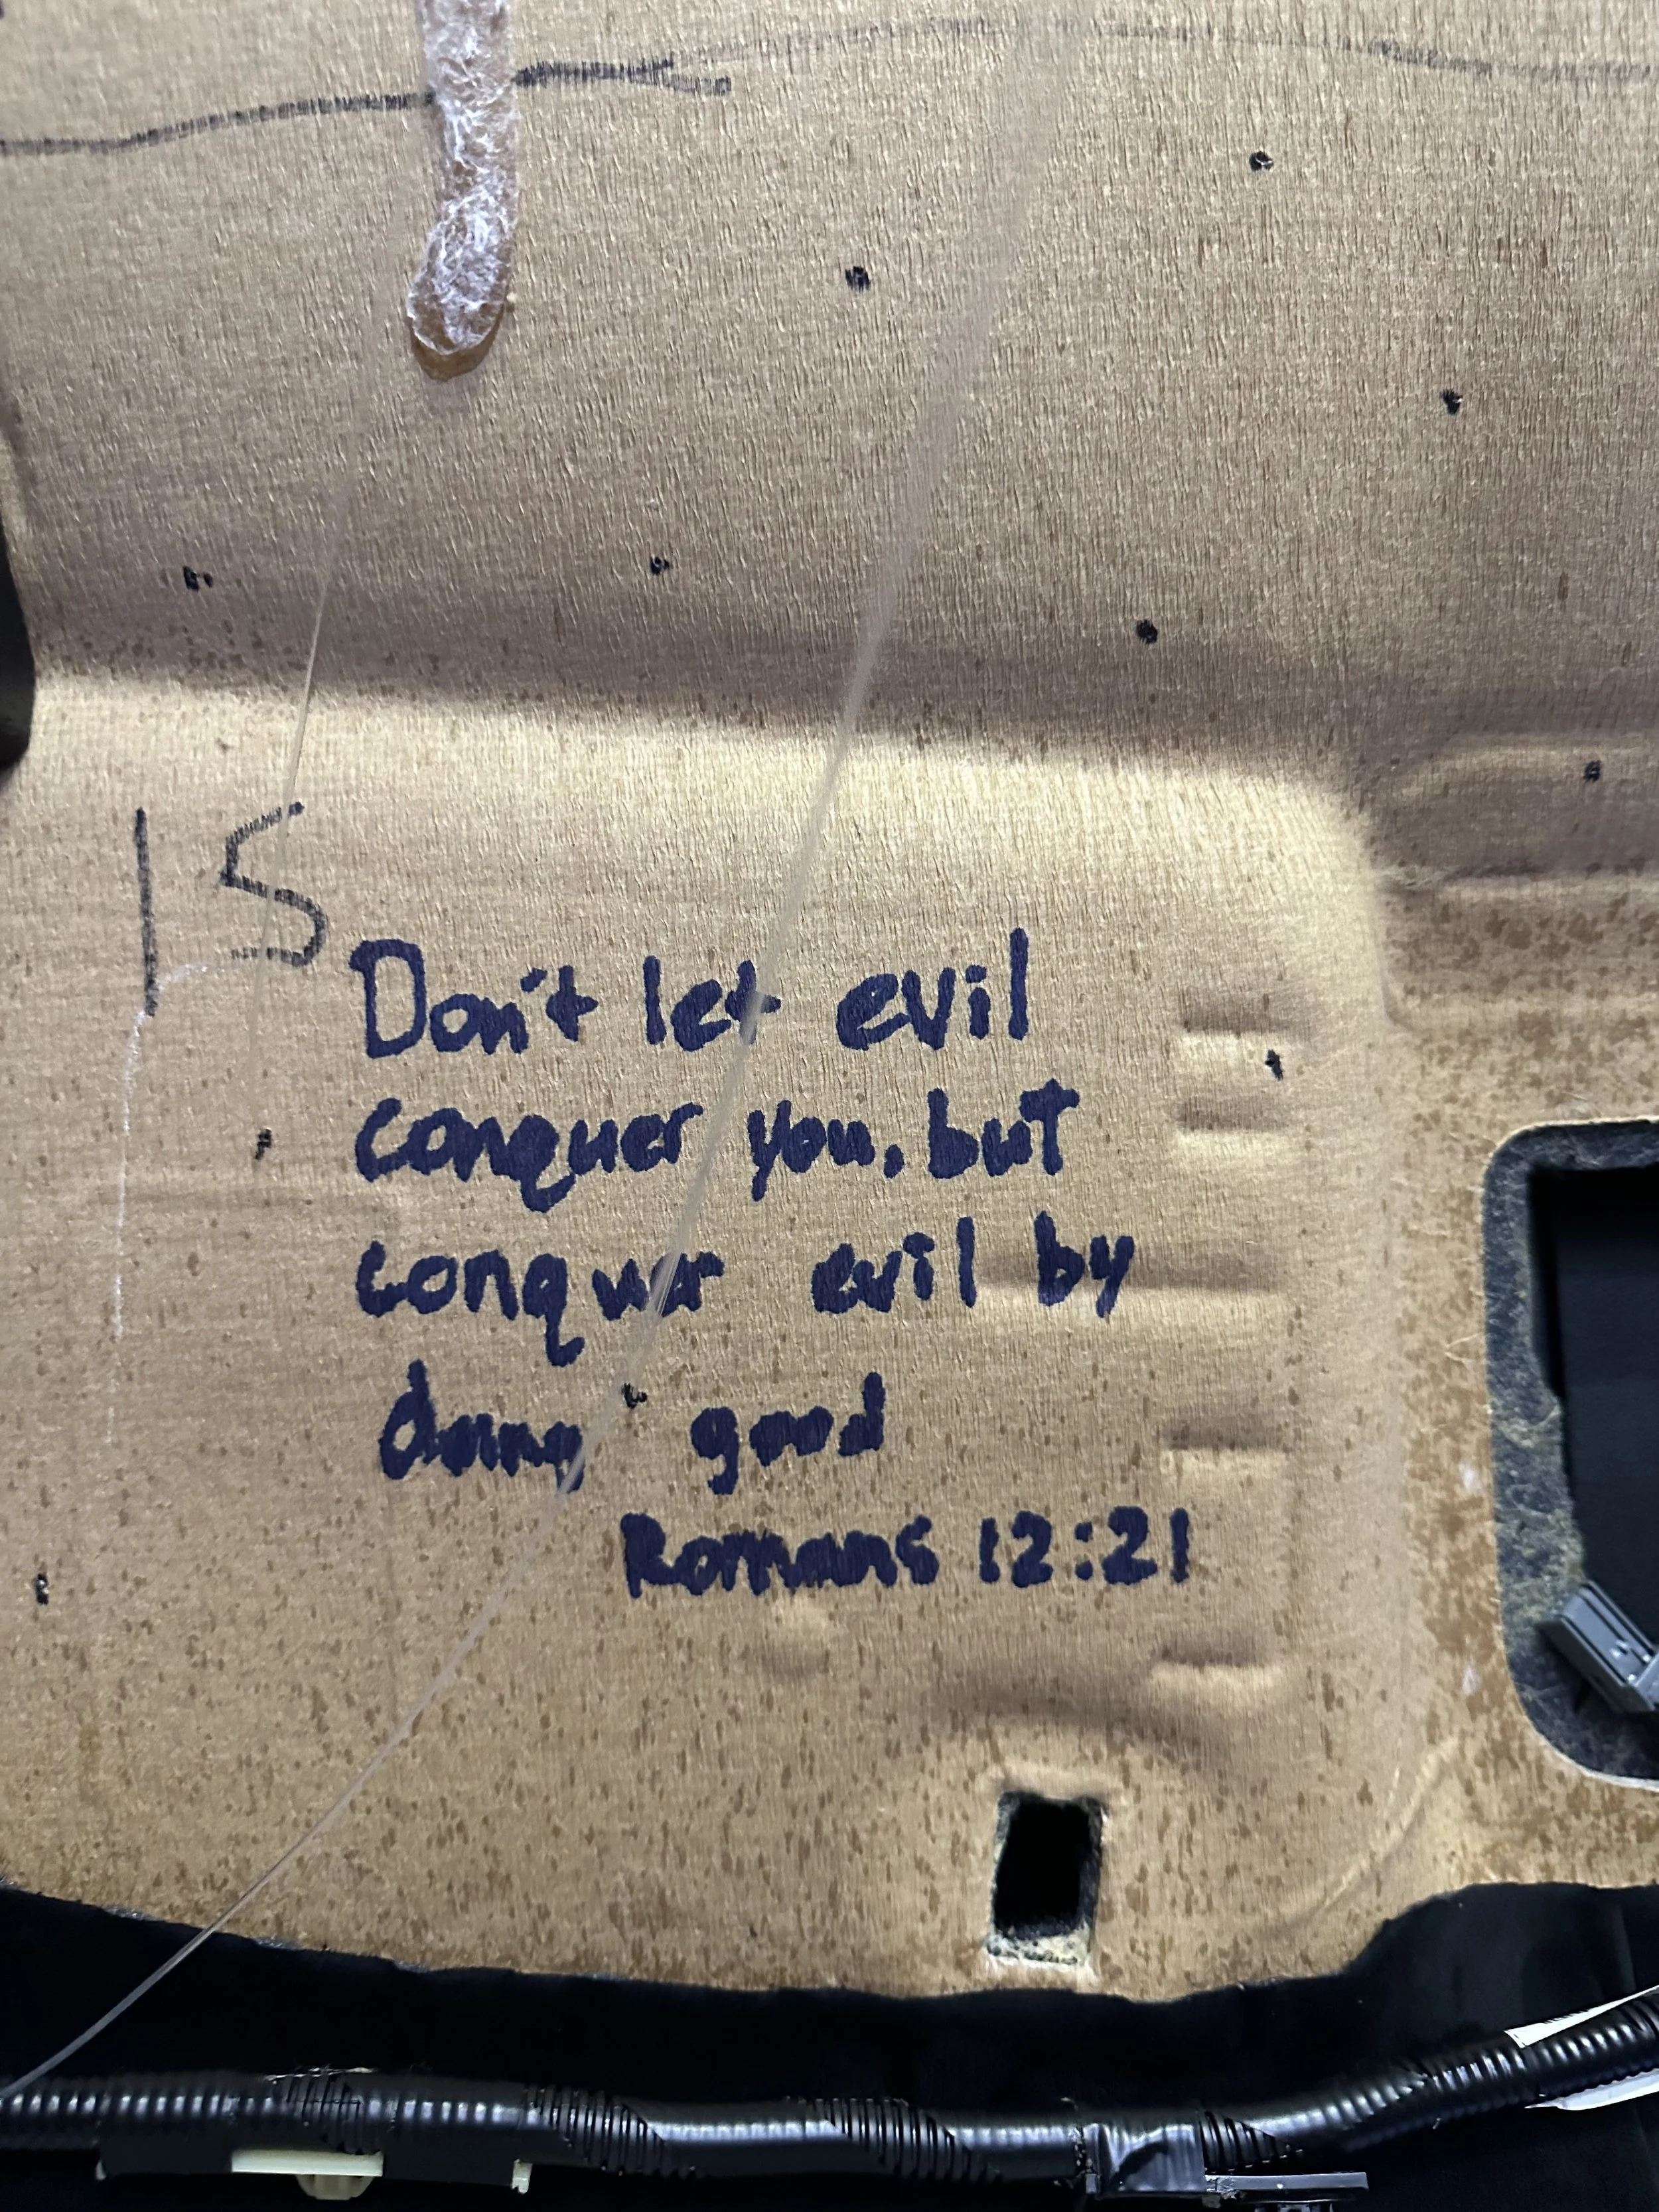 15
Don't let evil
conquer you, but
conquer evil by
doing good
Romans 12:21